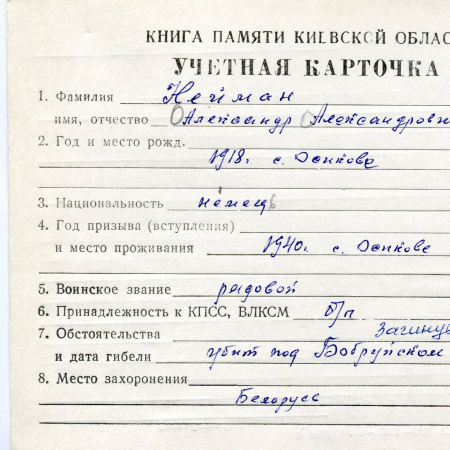 КНИГА ПАМЯТИ КИЕВСКОЙ ОБЛАС
УЧЕТНАЯ КАРТОЧКА
1. Фамилия Нейман
имя, отчество Александр Александрови
2. Год и место рожд.
1918г с. Осикове
3. Национальность немець
4. Год призыва (вступления)
и место проживания 1940г. с. Осикове
5. Воинское звание рядовой
6. Принадлежность к КПСС, ВЛКСМ б/п
7. Обстоятельства Загинув
и дата гибели убит под Бобруйском
8. Место захоронения
Белорусь